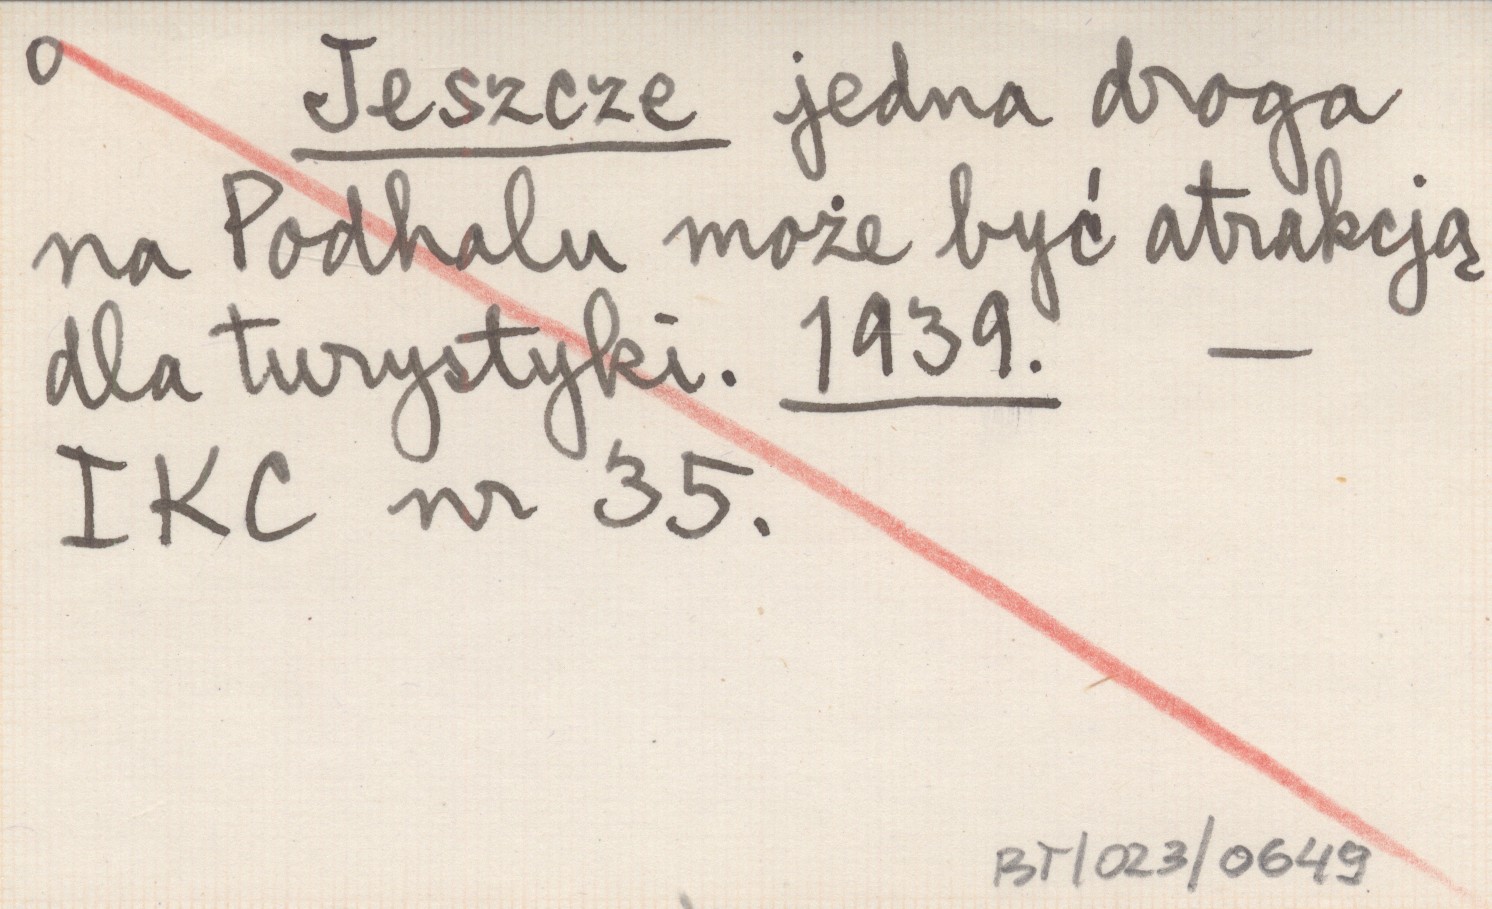 o Jeszcze jedna droga
na Podhalu może być atrakcją
dla turystyki. 1939. —
IKC nr 35.
BT/023/0649